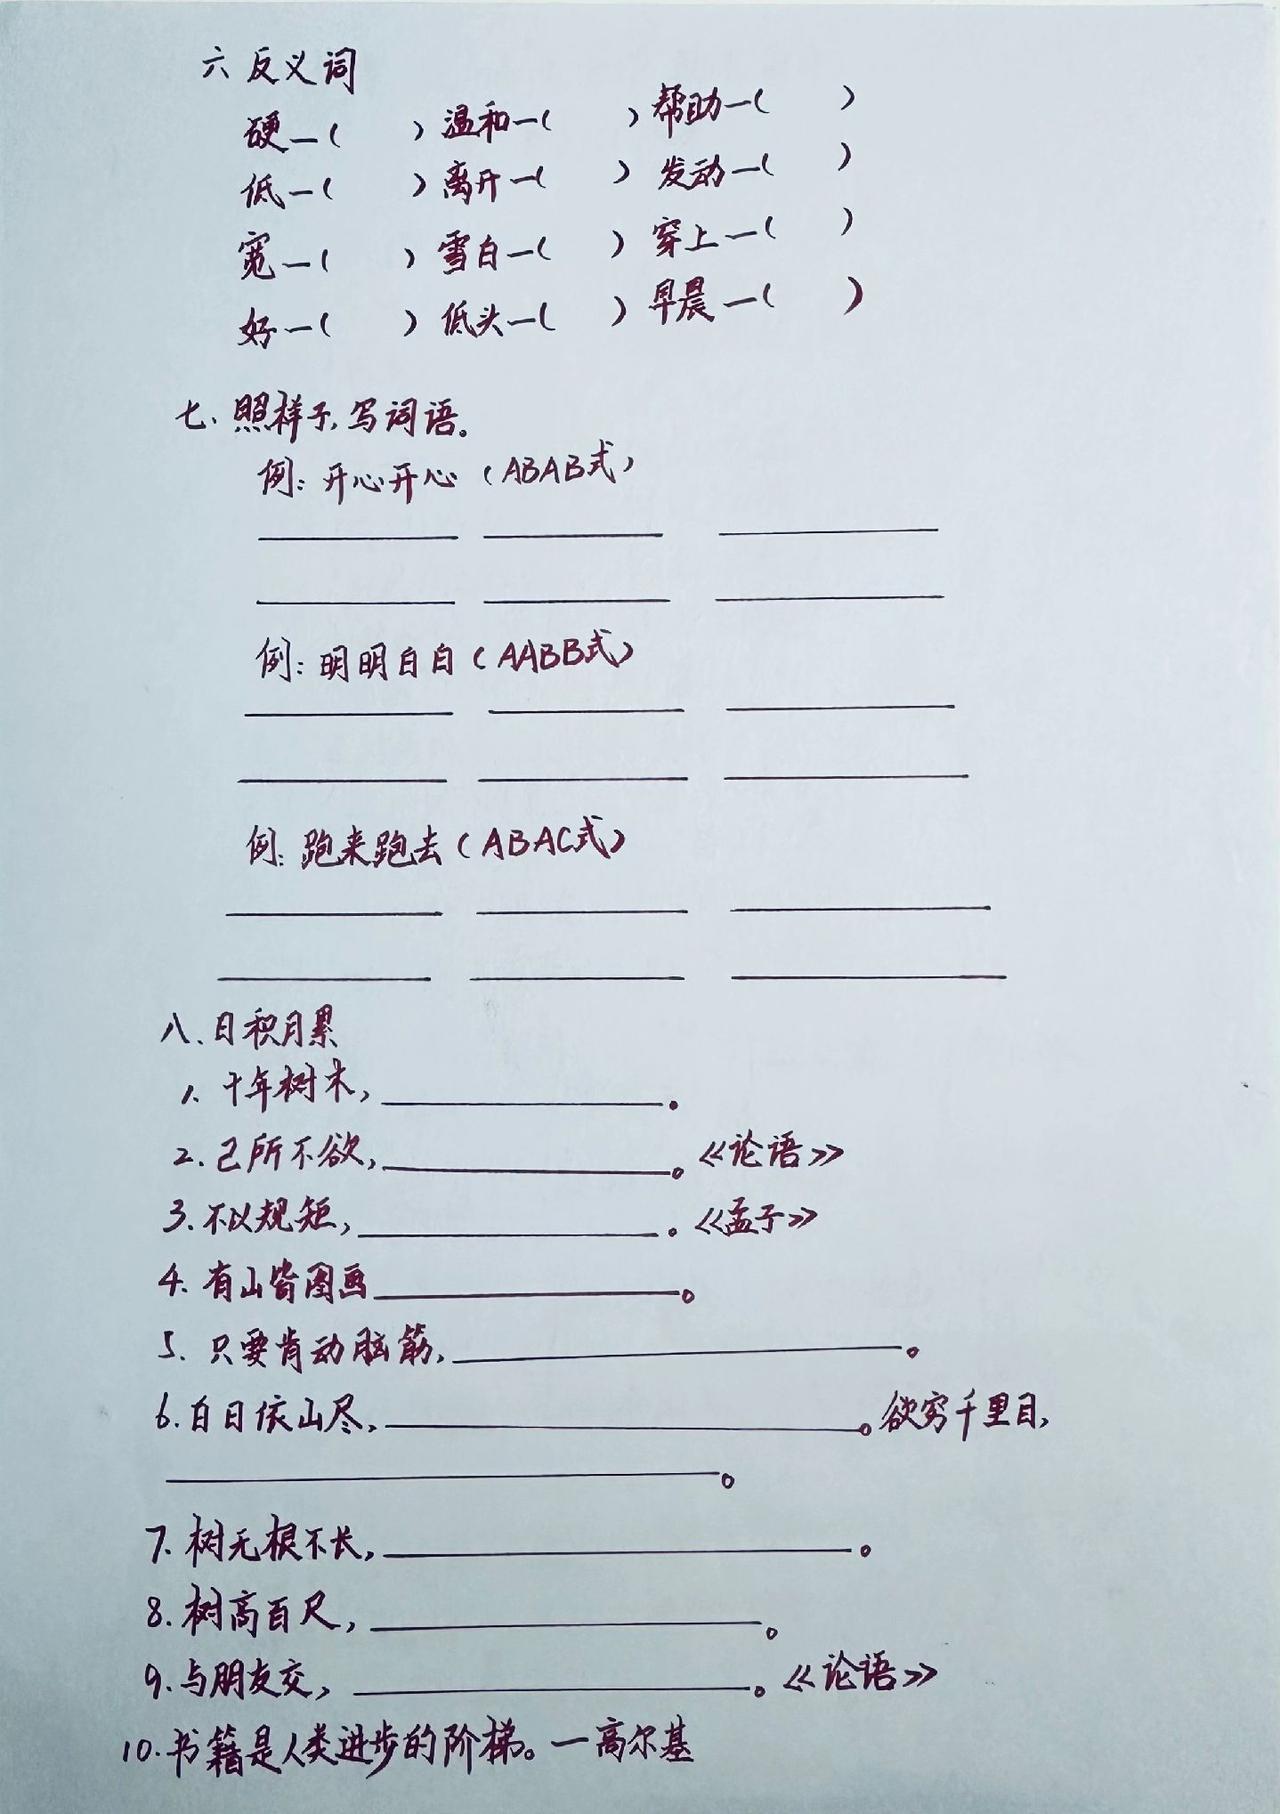 六 反义词
硬—( ) 温和—( ) 帮助—( )
低—( ) 离开—( ) 发动—( )
宽—( ) 雪白—( ) 穿上—( )
好—( ) 低头—( ) 早晨—( )
七、照样子,写词语。
例:开心开心(ABAB式)
例:明明白白(AABB式)
例:跑来跑去(ABAC式)
八、日积月累
1. 十年树木,______。
2. 己所不欲,______。《论语》
3. 不以规矩,______。《孟子》
4. 有山皆图画______。
5. 只要肯动脑筋,______。
6. 白日依山尽,______。欲穷千里目,
______。
7. 树无根不长,______。
8. 树高百尺,______。
9. 与朋友交,______。《论语》
10. 书籍是人类进步的阶梯。—高尔基